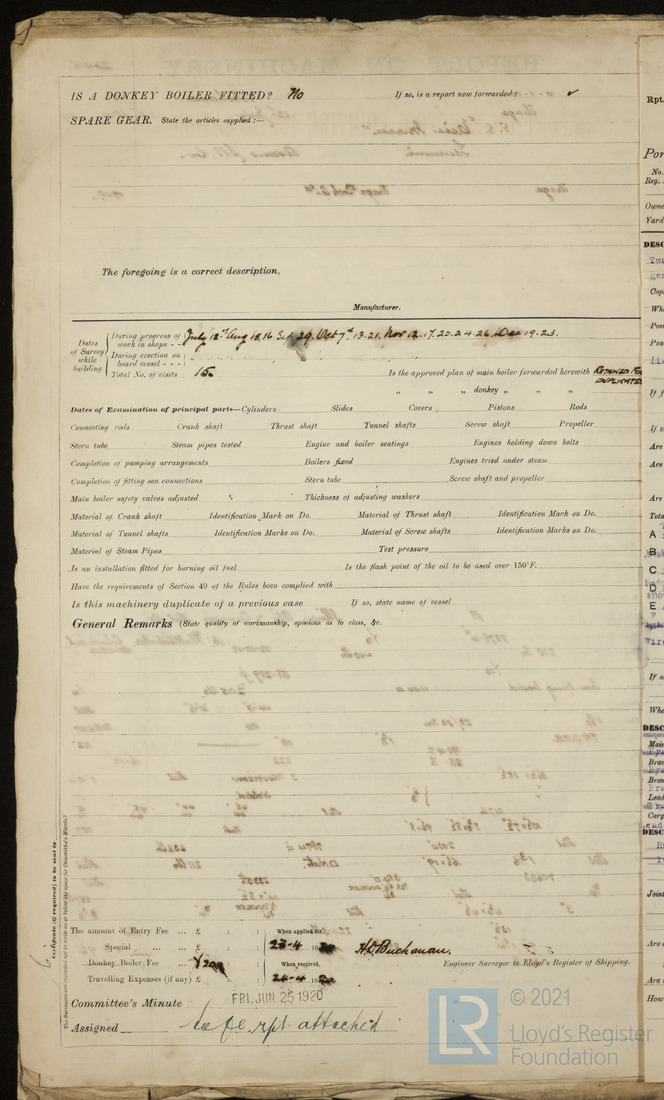 IS A DONKEY BOILER FITTED? No If so, is a report now forwarded? ✓
SPARE GEAR. State the articles supplied:—
The foregoing is a correct description,
Manufacturer.
Dates of Survey while building
During progress of work in shops - - July 12th Aug 13.16 Sep 29. Oct 7th 13.21. Nov 12.17.20.24.26, Dec 19.23.
During erection on board vessel - - -
Total No. of visits 15. Is the approved plan of main boiler forwarded herewith RETAINED FOR DUPLICATES
" " " donkey " " "
Dates of Examination of principal parts—Cylinders Slides Covers Pistons Rods
Connecting rods Crank shaft Thrust shaft Tunnel shafts Screw shaft Propeller
Stern tube Steam pipes tested Engine and boiler seatings Engines holding down bolts
Completion of pumping arrangements Boilers fixed Engines tried under steam
Completion of fitting sea connections Stern tube Screw shaft and propeller
Main boiler safety valves adjusted Thickness of adjusting washers
Material of Crank shaft Identification Mark on Do. Material of Thrust shaft Identification Mark on Do.
Material of Tunnel shafts Identification Marks on Do. Material of Screw shafts Identification Marks on Do.
Material of Steam Pipes Test pressure
Is an installation fitted for burning oil fuel Is the flash point of the oil to be used over 150°F.
Have the requirements of Section 49 of the Rules been complied with
Is this machinery duplicate of a previous case If so, state name of vessel
General Remarks (State quality of workmanship, opinions as to class, &c.
Certificate (if required) to be sent to
The amount of Entry Fee ... £ : : When applied for,
Special ... £ : : 23-4 1920 H.D. Buchanan.
Donkey Boiler Fee ... ¥200 : : When received, Engineer Surveyor to Lloyd's Register of Shipping.
Travelling Expenses (if any) £ : : 24-4 1920
Committee's Minute FRI. JUN. 25 1920
Assigned See F.E. rpt. attached
© 2021
LR Lloyd's Register
Foundation